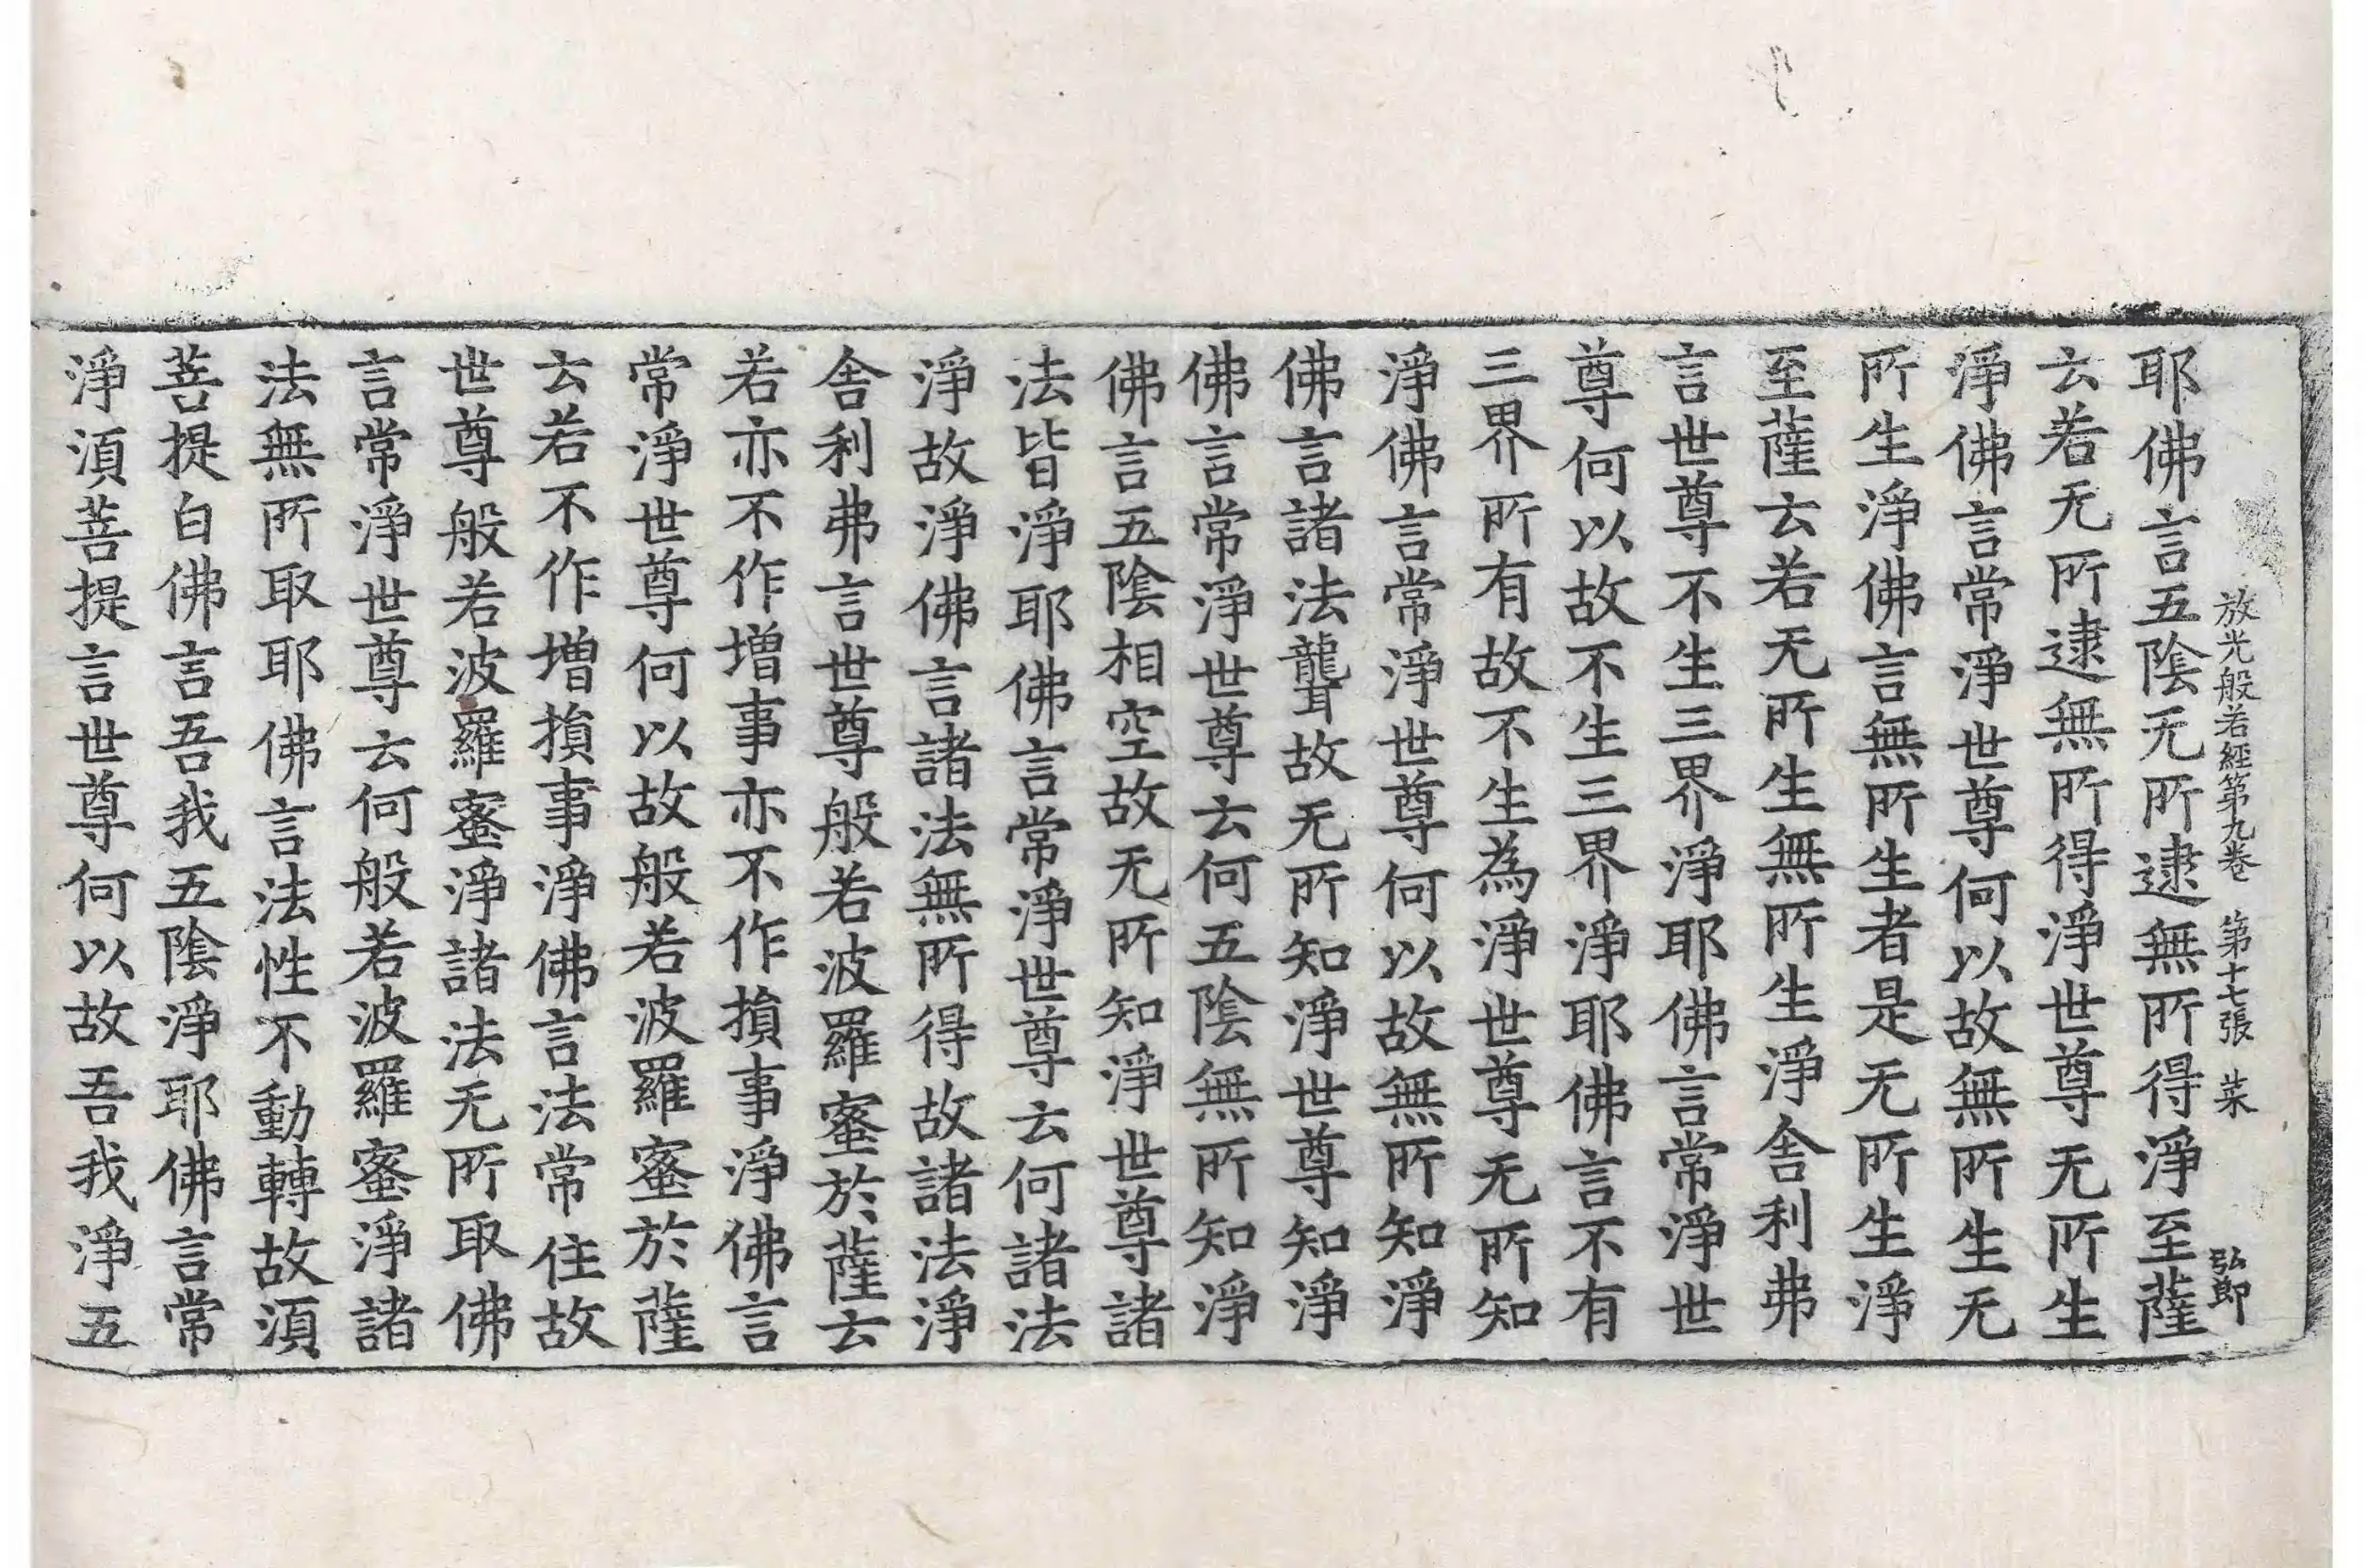 放光般若經第九卷　第十七張　菜　弘郎
耶佛言五陰无所逮無所得淨至薩
云若无所逮無所得淨世尊无所生
淨佛言常淨世尊何以故無所生无
所生淨佛言無所生者是无所生淨
至薩云若无所生無所生淨舍利弗
言世尊不生三界淨耶佛言常淨世
尊何以故不生三界淨耶佛言不有
三界所有故不生為淨世尊无所知
淨佛言常淨世尊何以故無所知淨
佛言諸法聾故无所知淨世尊知淨
佛言常淨世尊云何五陰無所知淨
佛言五陰相空故无所知淨世尊諸
法皆淨耶佛言常淨世尊云何諸法
淨故淨佛言諸法無所得故諸法淨
舍利弗言世尊般若波羅蜜於薩云
若亦不作增事亦不作損事淨佛言
常淨世尊何以故般若波羅蜜於薩
云若不作增損事淨佛言法常住故
世尊般若波羅蜜淨諸法无所取佛
言常淨世尊云何般若波羅蜜淨諸
法無所取耶佛言法性不動轉故須
菩提白佛言吾我五陰淨耶佛言常
淨須菩提言世尊何以故吾我淨五